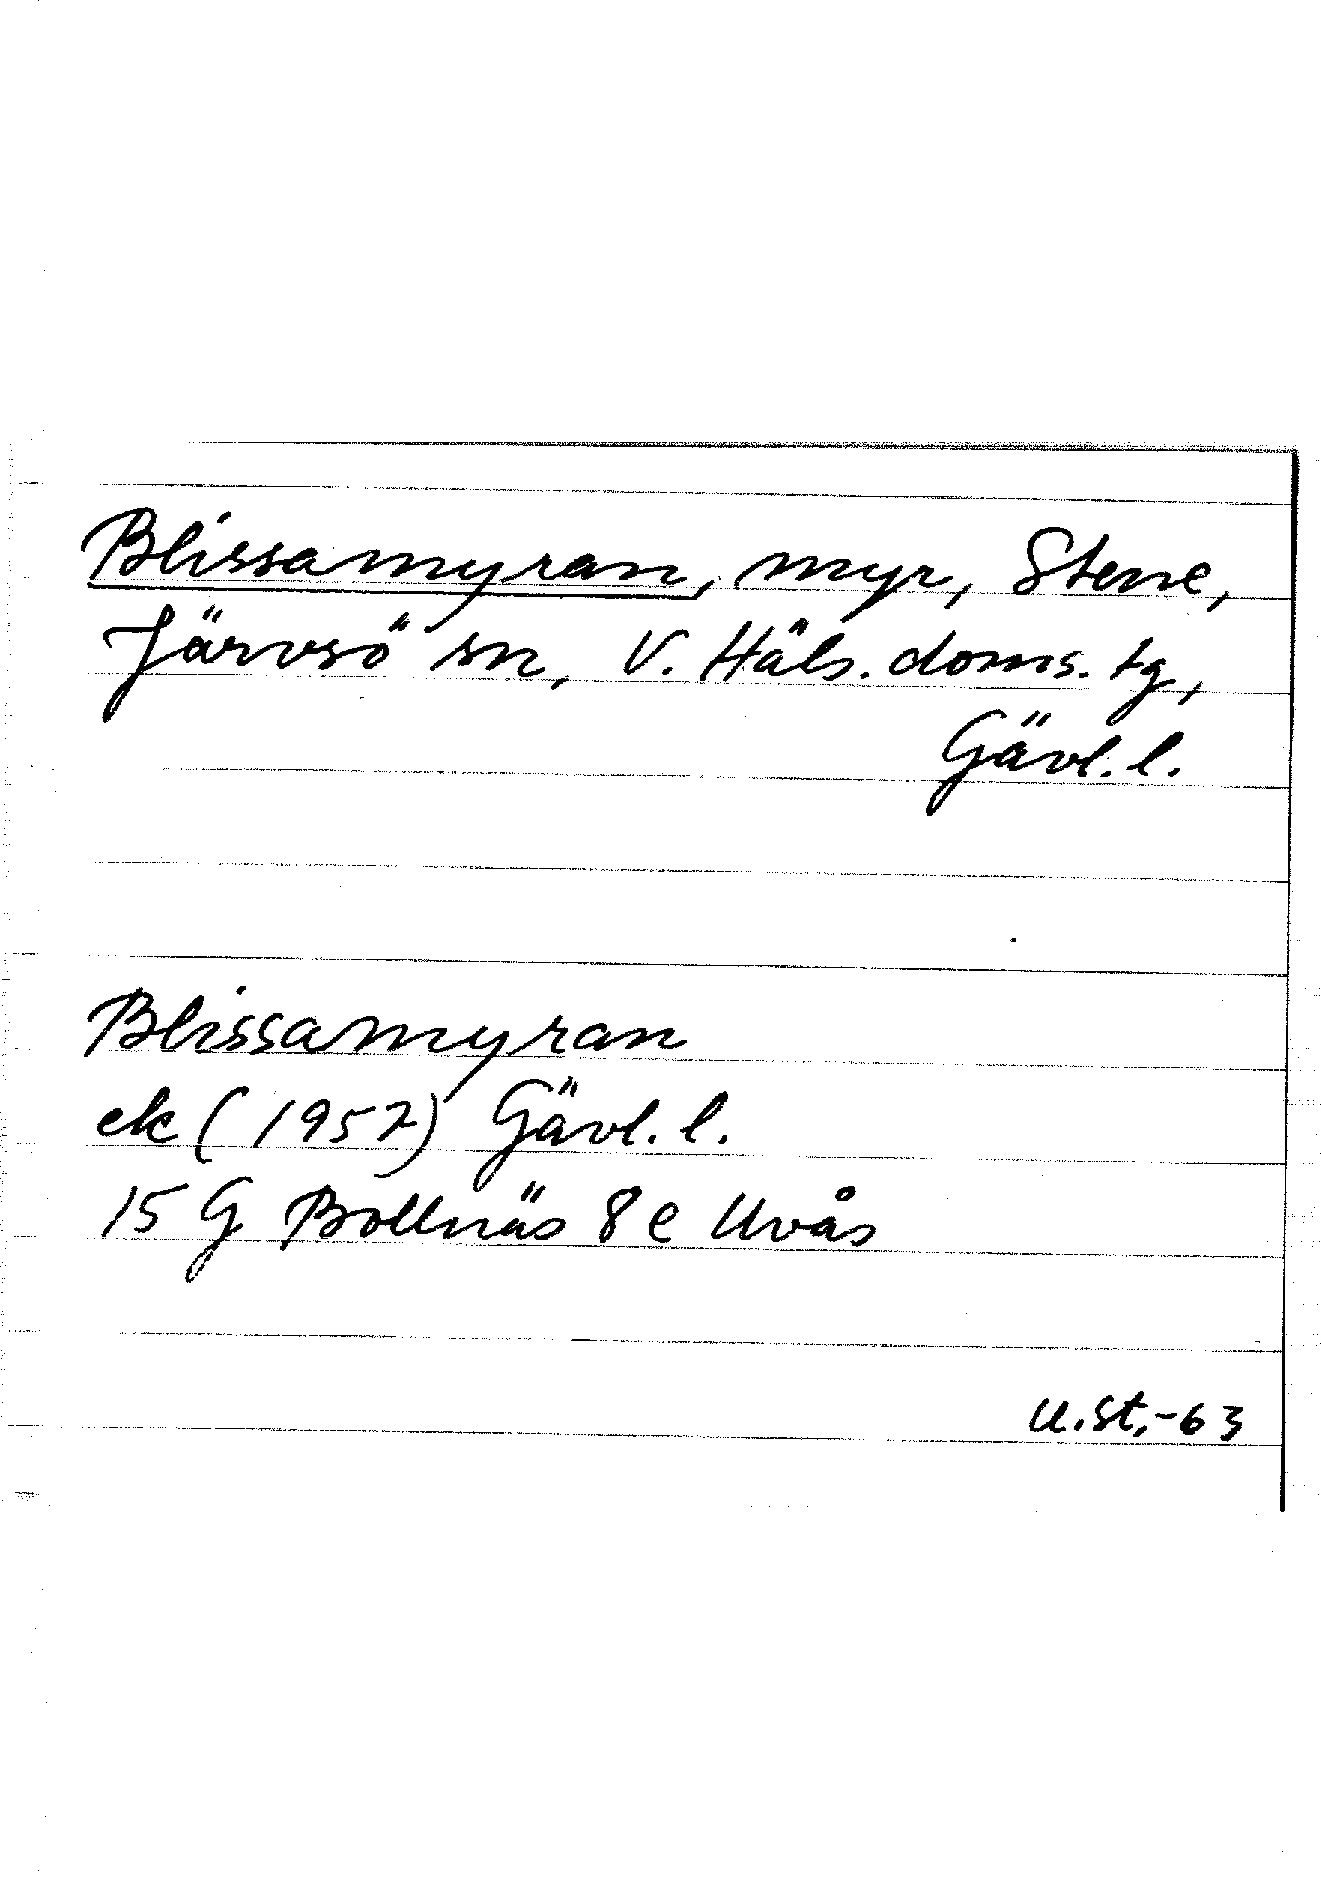 Blissamyran, myr, Stene,
Järvsö sn, V. Häls. doms. tg,
Gävl. l.
Blissamyran
ek (1957) Gävl. l.
15 G Bollnäs 8 e Uvås
U.St,-63